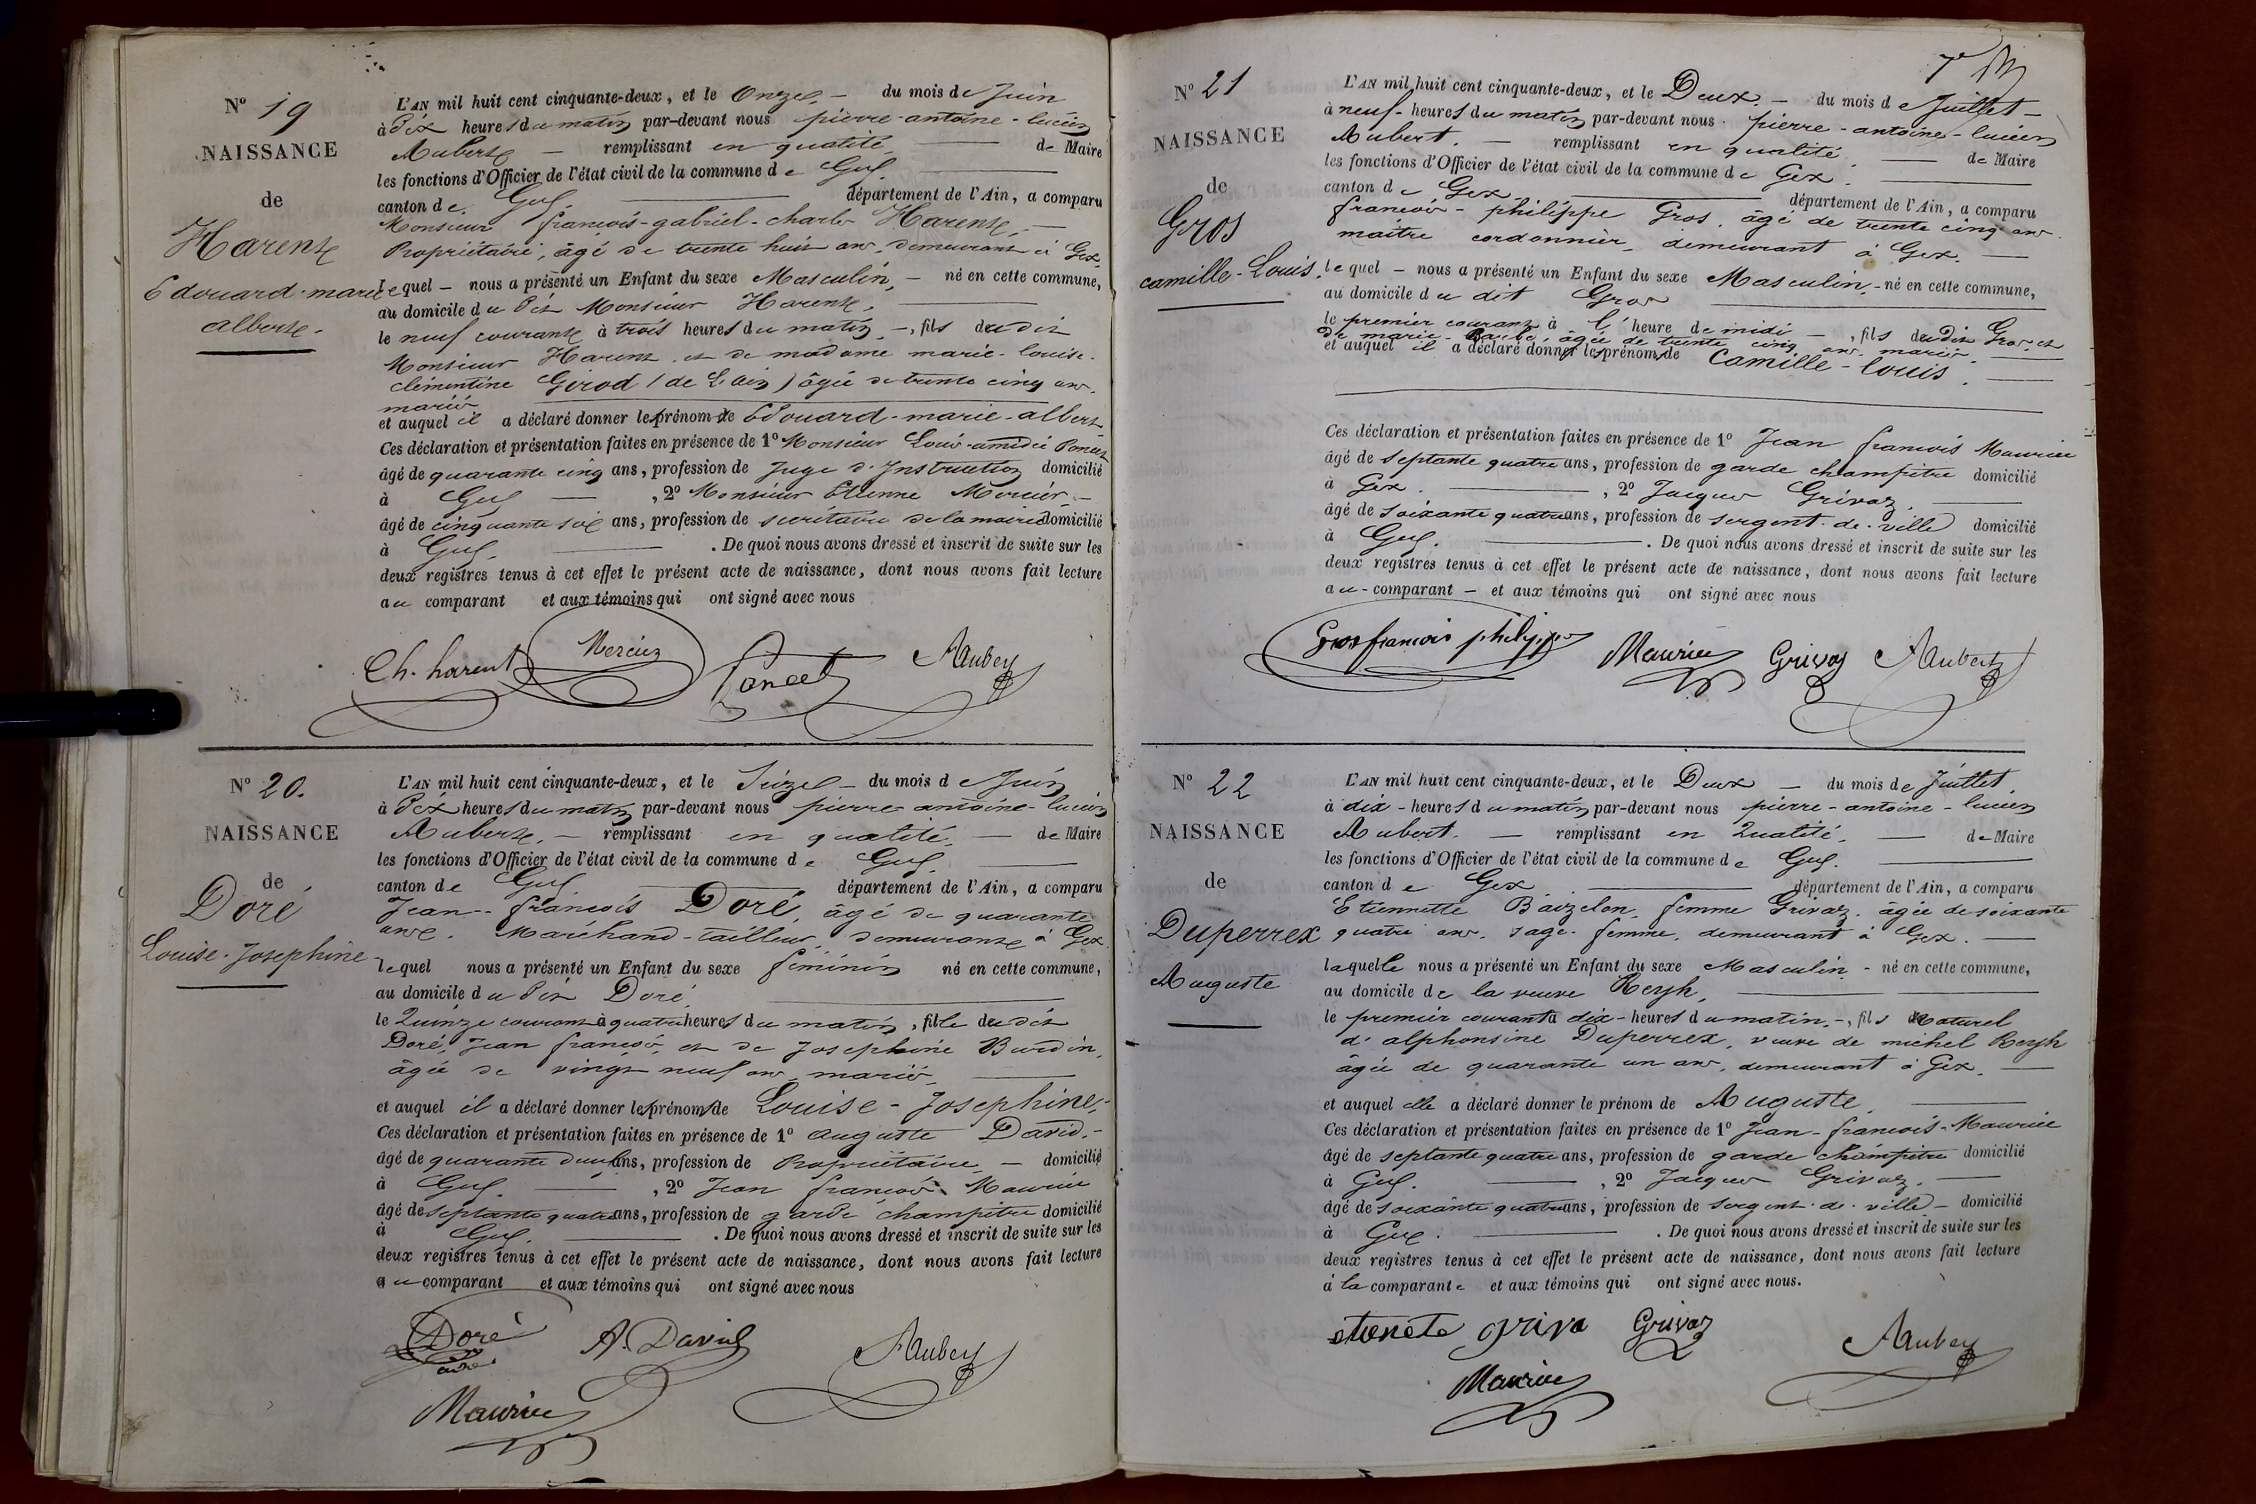 N° 19
NAISSANCE
de
Harent
Edouard-marie
albert.
L'AN mil huit cent cinquante-deux, et le Onze — du mois de Juin
à Dix heures du matin par-devant nous pierre-antoine-lucien
Aubert — remplissant en qualité — de Maire
les fonctions d'Officier de l'état civil de la commune de Gex.
canton de Gex. département de l'Ain, a comparu
Monsieur francois-gabriel-charles Harent, —
Propriétaire, âgé de trente huit ans, demeurant à Gex.
Lequel — nous a présenté un Enfant du sexe Masculin, — né en cette commune,
au domicile du dit Monsieur Harent,
le neuf courant à trois heures du matin —, fils du dit
Monsieur Harent et de madame marie-louise-
clémentine Girod (de l'ain) âgée de trente cinq ans.
mariés
et auquel il a déclaré donner les prénoms de Edouard-marie-albert
Ces déclaration et présentation faites en présence de 1° Monsieur Louis-amédée Poncet
âgé de quarante cinq ans, profession de Juge d'Instruction domicilié
à Gex —, 2° Monsieur Etienne Mercier —
âgé de cinquante six ans, profession de secrétaire de la mairie domicilié
à Gex. — . De quoi nous avons dressé et inscrit de suite sur les
deux registres tenus à cet effet le présent acte de naissance, dont nous avons fait lecture
au comparant et aux témoins qui ont signé avec nous
Ch. harent Mercier Poncet Aubert
N° 20.
NAISSANCE
de
Doré
Louise-Josephine
L'AN mil huit cent cinquante-deux, et le Seize — du mois de Juin
à Dix heures du matin par-devant nous pierre-antoine-lucien
Aubert, — remplissant en qualité, — de Maire
les fonctions d'Officier de l'état civil de la commune de Gex.
canton de Gex. département de l'Ain, a comparu
Jean-francois Doré, âgé de quarante
ans, Marchand-tailleur, demeurant à Gex
lequel nous a présenté un Enfant du sexe féminin né en cette commune,
au domicile du dit Doré,
le Quinze courant à quatre heures du matin, fille du dit
Doré, Jean francois, et de Josephine Burdin,
âgée de vingt neuf ans, mariés,
et auquel il a déclaré donner les prénoms de Louise-Josephine,-
Ces déclaration et présentation faites en présence de 1° auguste David,-
âgé de quarante deux ans, profession de Propriétaire, — domicilié
à Gex. —, 2° Jean francois Maurice
âgé de septante quatre ans, profession de garde champêtre domicilié
à Gex. — . De quoi nous avons dressé et inscrit de suite sur les
deux registres tenus à cet effet le présent acte de naissance, dont nous avons fait lecture
au comparant et aux témoins qui ont signé avec nous
Doré A. David Aubert
Maurice
N° 21
NAISSANCE
de
Gros
camille-Louis.
L'AN mil huit cent cinquante-deux, et le Deux. — du mois de Juillet —
à neuf-heures du matin par-devant nous pierre-antoine-lucien
Aubert. — remplissant en qualité. — de Maire
les fonctions d'Officier de l'état civil de la commune de Gex.
canton de Gex département de l'Ain, a comparu
francois-philippe Gros, âgé de trente cinq ans
maitre cordonnier, demeurant à Gex. —
lequel — nous a présenté un Enfant du sexe Masculin,- né en cette commune,
au domicile du dit Gros
le premier courant à l'heure de midi —, fils du dit Gros, et
de marie- âgée de trente cinq ans mariés.
et auquel il a déclaré donner les prénoms de Camille-Louis.
Ces déclaration et présentation faites en présence de 1° Jean francois Maurice
âgé de septante quatre ans, profession de garde champêtre domicilié
à Gex. —, 2° Jacques Grivaz,
âgé de soixante quatre ans, profession de sergent-de-ville domicilié
à Gex. — . De quoi nous avons dressé et inscrit de suite sur les
deux registres tenus à cet effet le présent acte de naissance, dont nous avons fait lecture
au-comparant — et aux témoins qui ont signé avec nous
Gros francois philippe Maurice Grivaz Aubert
N° 22
NAISSANCE
de
Duperrex
Auguste
L'AN mil huit cent cinquante-deux, et le Deux — du mois de Juillet.
à dix-heures du matin par-devant nous pierre-antoine-lucien
Aubert. — remplissant en Qualité, — de Maire
les fonctions d'Officier de l'état civil de la commune de Gex.
canton de Gex département de l'Ain, a comparu
Etiennette Baizelon, femme Grivaz, âgée de soixante
quatre ans, sage-femme, demeurant à Gex. —
laquelle nous a présenté un Enfant du sexe Masculin - né en cette commune,
au domicile de la veuve Reyh,
le premier courant à dix-heures du matin,-, fils naturel
d'alphonsine Duperrex, veuve de michel Reyh
âgée de quarante un ans, demeurant à Gex. —
et auquel elle a déclaré donner le prénom de Auguste.
Ces déclaration et présentation faites en présence de 1° Jean-francois-Maurice
âgé de septante quatre ans, profession de garde champêtre domicilié
à Gex. —, 2° Jacques Grivaz, —
âgé de soixante quatre ans, profession de sergent-de-ville — domicilié
à Gex. — . De quoi nous avons dressé et inscrit de suite sur les
deux registres tenus à cet effet le présent acte de naissance, dont nous avons fait lecture
à la comparante et aux témoins qui ont signé avec nous.
etienete griva Grivaz Aubert
Maurice